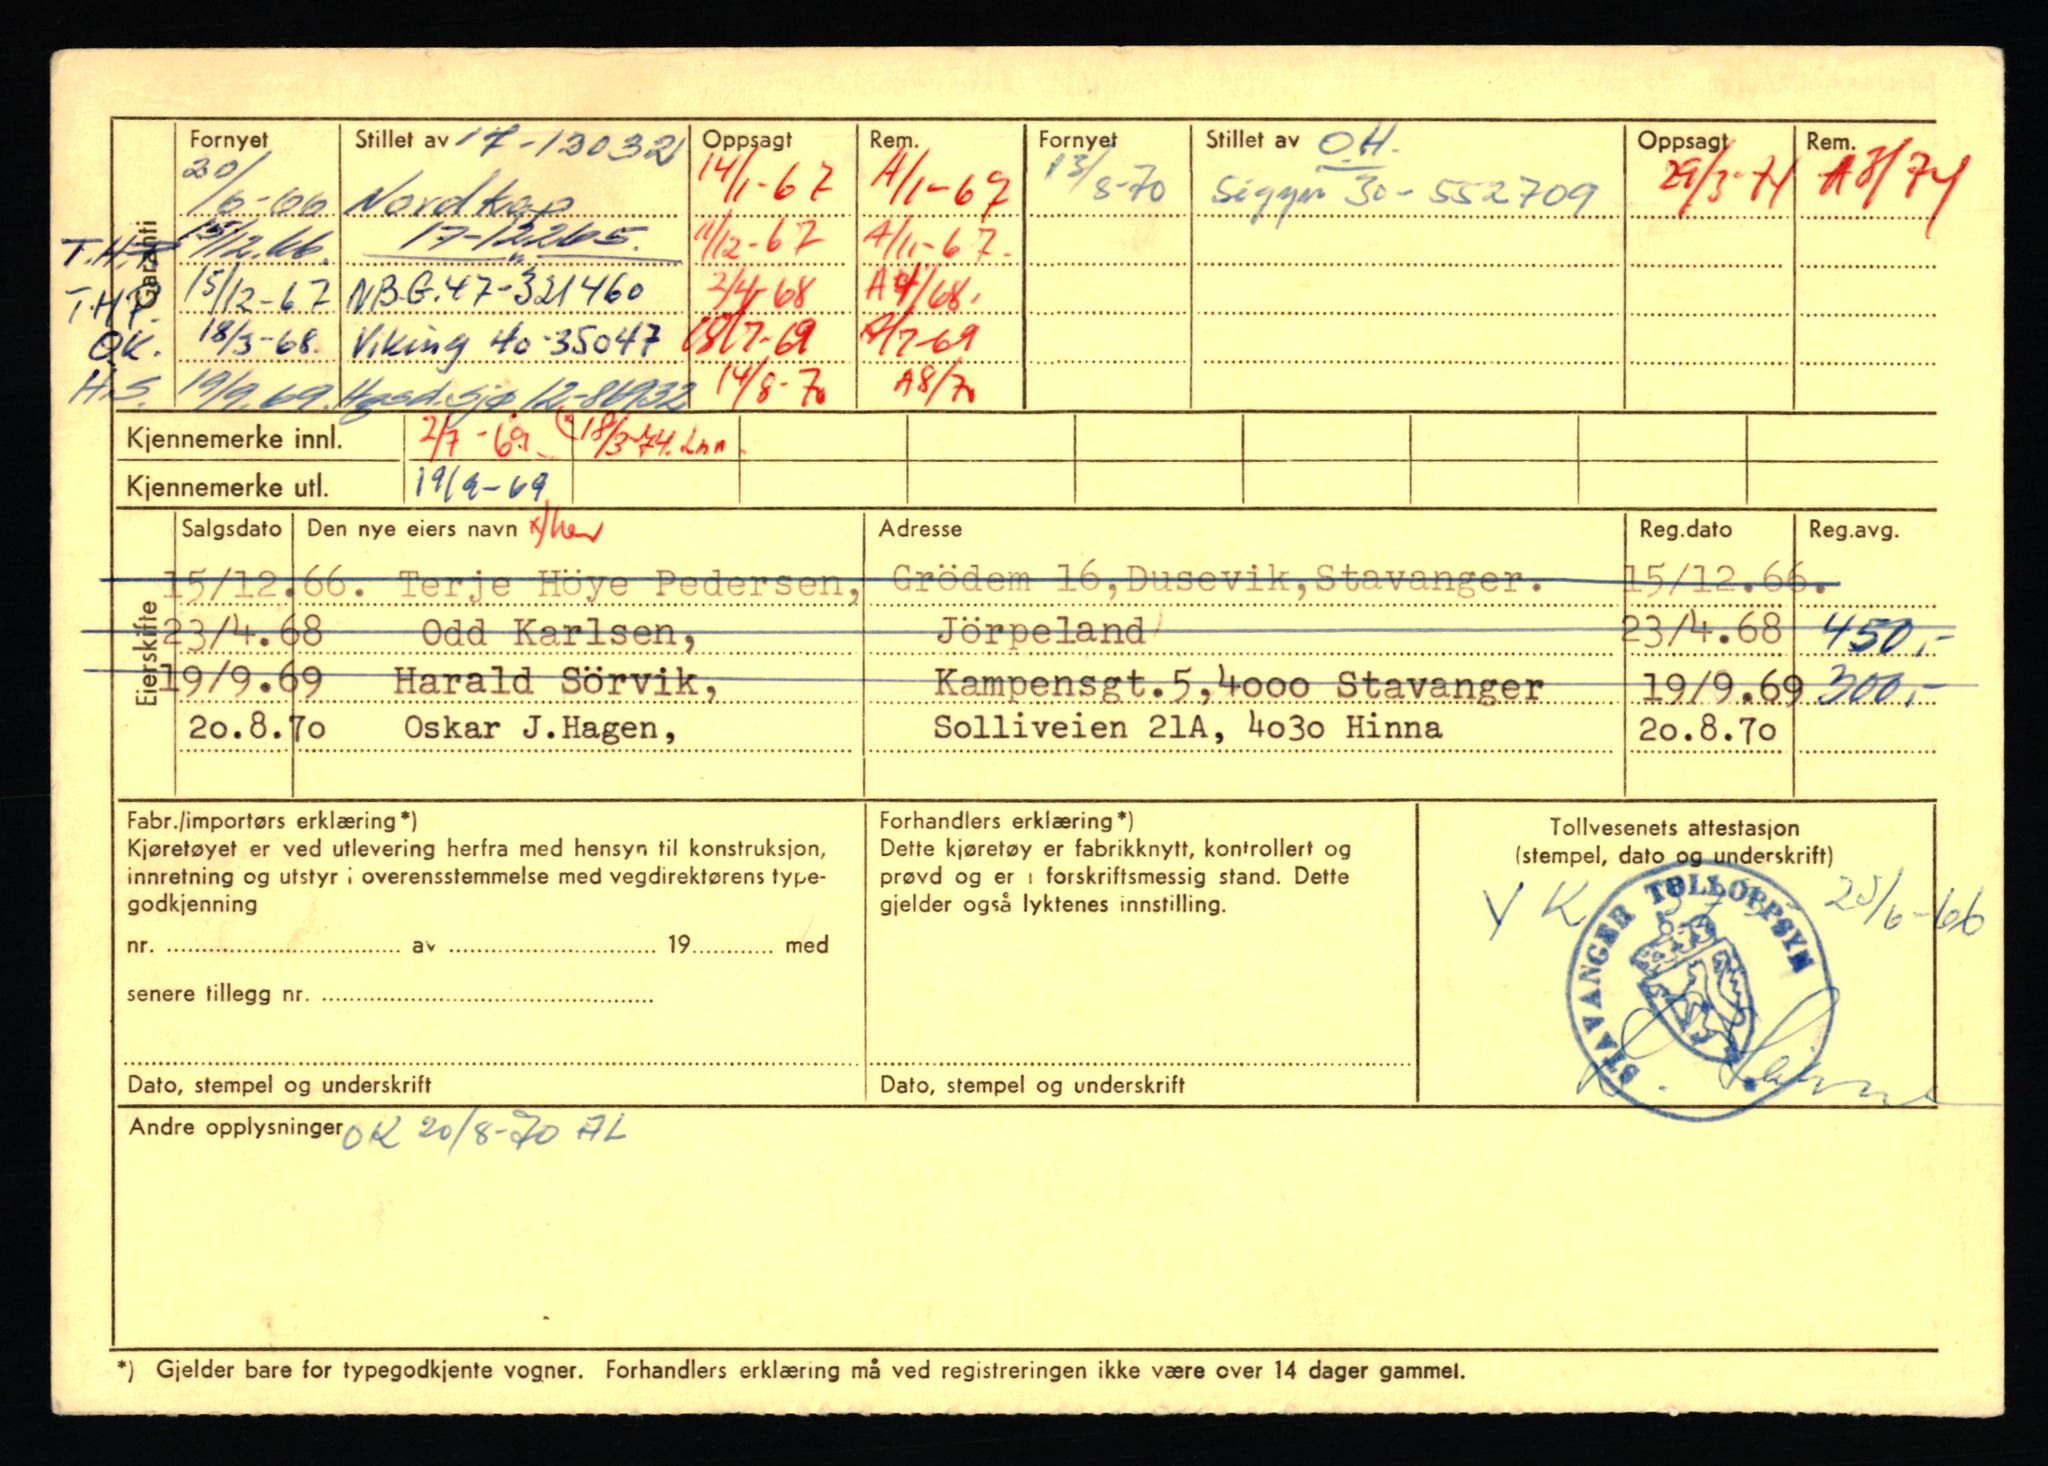 Garanti
Fornyet Stillet av 17-13032 Oppsagt Rem. Fornyet Stillet av O.H. Oppsagt Rem.
20/6-66 Nordkap 14/1-67 A/1-67 13/8-70 Sigyn 30-552709 29/3-74 A8/74
T.H.P. 15/12.66. 17-12265. 11/12-67 A/11-67.
T.H.P. 15/12-67 N.B.G.47-321460 2/4-68 A4/68.
OK. 18/3-68. Viking 40-35047 18/7-69 A/7-69
H.S. 19/9.69. 14/8-70 A8/70
Kjennemerke innl. 2/7-69. 18/3-74. Inn.
Kjennemerke utl. 19/9-69
Eierskifte
Salgsdato Den nye eiers navn Adresse Reg.dato Reg.avg.
15/12.66. Terje Höye Pedersen, Grödem 16,Dusevik,Stavanger. 15/12.66.
23/4.68 Odd Karlsen, Jörpeland 23/4.68 450,-
19/9.69 Harald Sörvik, Kampensgt.5,4000 Stavanger 19/9.69 300,-
20.8.70 Oskar J.Hagen, Solliveien 21A, 4030 Hinna 20.8.70
Fabr./importørs erklæring*)
Kjøretøyet er ved utlevering herfra med hensyn til konstruksjon,
innretning og utstyr i overensstemmelse med vegdirektørens type-
godkjenning
nr. ........ av ........ 19........ med
senere tillegg nr. ........
Dato, stempel og underskrift
Forhandlers erklæring*)
Dette kjøretøy er fabrikknytt, kontrollert og
prøvd og er i forskriftsmessig stand. Dette
gjelder også lyktenes innstilling.
Dato, stempel og underskrift
Tollvesenets attestasjon
(stempel, dato og underskrift)
V K 25/6-66
STAVANGER TOLLOPPSYN
Andre opplysninger OK 20/8-70 AL
*) Gjelder bare for typegodkjente vogner. Forhandlers erklæring må ved registreringen ikke være over 14 dager gammel.